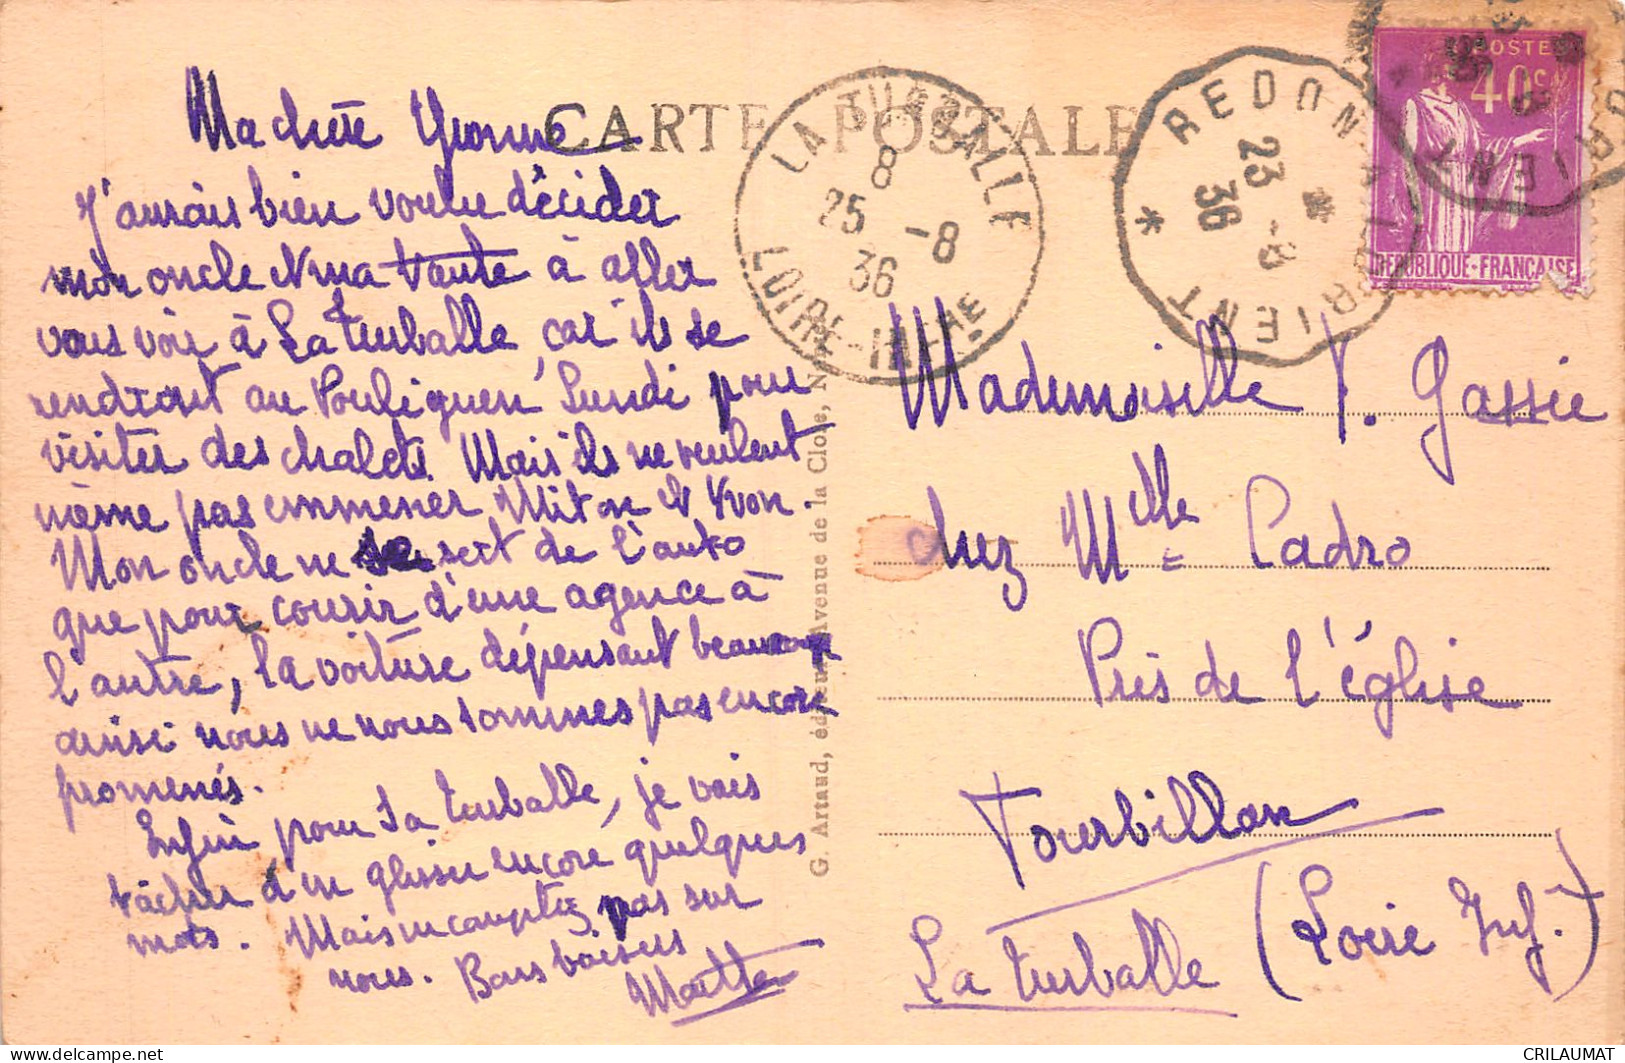 CARTE POSTALE
Ma chère Yvonne
J'aurais bien voulu décider
mon oncle à aller
vous voir à La Turballe, car ils se
rendront au Pouliguen, Lundi pour
visiter des chalets. Mais ils ne veulent
même pas emmener Miton et Yvon.
Mon oncle ne se sert de l'auto
que pour courir d'une agence à
l'autre, la voiture dépensant beaucoup
ainsi nous ne nous sommes pas encore
promenés.
Enfin pour La Turballe, je vais
tâcher d'en glisser encore quelques
mots. Mais ne comptez pas sur
nous. Bons baisers
G. Artaud, éditeur, Avenue de la Close, N
LA TURBALLE
8
25 -8
36
LOIRE-INF-RE
REDON A LORIENT
23 -8
36
POSTES
40c
REPUBLIQUE-FRANÇAISE
Mademoiselle Y. Gassie
chez Mlle Cadro
Près de l'église
Tourbillon
La Turballe (Loire Inf.)
CRILAUMAT
delcampe.net